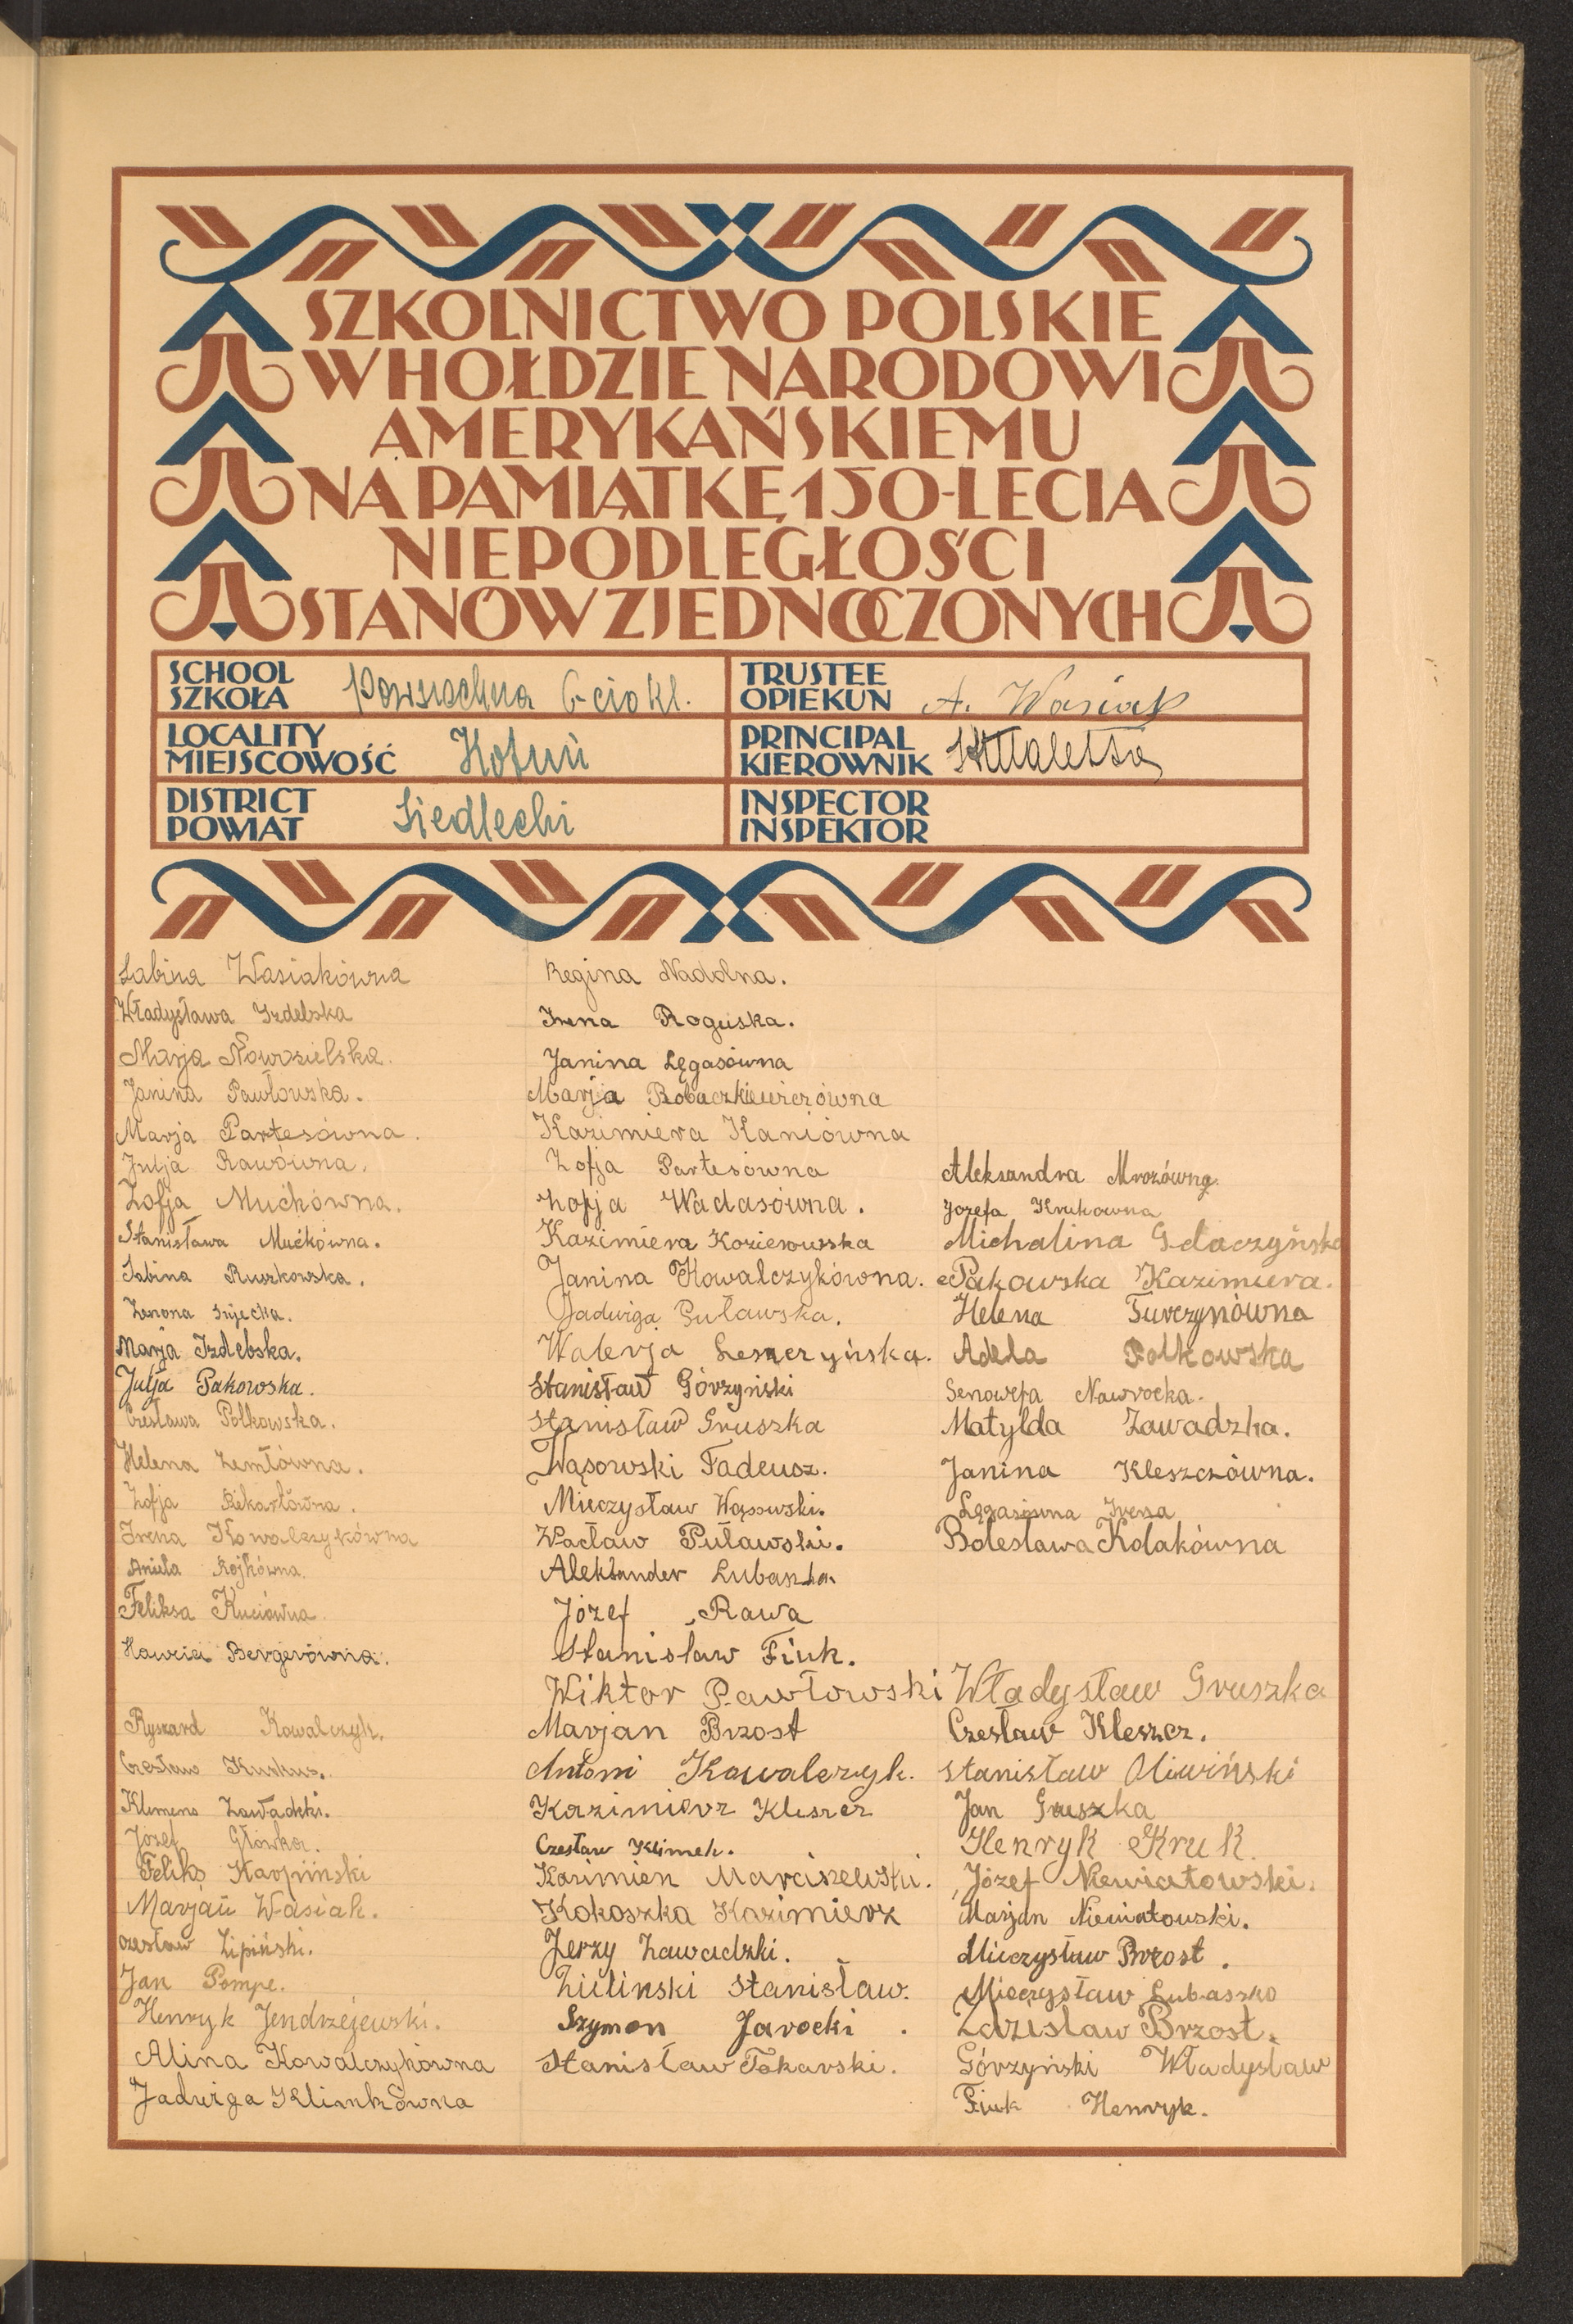 SZKOLNICTWO POLSKIE
W HOŁDZIE NARODOWI
AMERYKAŃSKIEMU
NA PAMIĄTKĘ 150-LECIA
NIEPODLEGŁOŚCI
STANÓW ZJEDNOCZONYCH
SCHOOL
SZKOŁA
Powszechna 6-cio kl.
TRUSTEE
OPIEKUN
A. Wasiak
LOCALITY
MIEJSCOWOŚĆ
Kotuń
PRINCIPAL
KIEROWNIK
DISTRICT
POWIAT
Siedlecki
INSPECTOR
INSPEKTOR
Sabina Wasiakówna
Władysława Izdebska
Marja Nowosielska.
Janina Pawłowska.
Marja Partesówna.
Julja Rawówna.
Zofja Mućkówna.
Stanisława Mućkówna.
Sabina Ruszkowska.
Zenona Sujecka.
Marja Izdebska.
Julja Pakowska.
Czesława Polkowska.
Helena Zemłówna.
Zofja Piekartówna.
Irena Kowalczykówna
Aniela Rojkówna.
Feliksa Kuciówna.
Bergerówna.
Ryszard Kowalczyk.
Czesław Kuskus.
Klemens Zawadzki.
Józef Główka.
Feliks Karpiński
Marjan Wasiak.
Czesław Lipiński.
Jan Pompe.
Henryk Jendrzejewski.
Alina Kowalczykówna
Jadwiga Klimkówna
Regina Nadolna.
Irena Roguska.
Janina Lęgasówna
Marja Robaczkiewiczówna
Kazimiera Kaniówna
Zofja Partesówna
Zofja Wadasówna.
Kazimiera Kozierowska
Janina Kowalczykówna.
Jadwiga Puławska.
Walerja Leszczyńska.
Stanisław Górzyński
Stanisław Gruszka
Wąsowski Tadeusz.
Mieczysław Wąsowski.
Wacław Puławski.
Aleksander Lubaszka
Józef Rawa
Stanisław Fiuk.
Wiktor Pawłowski
Marjan Brzost
Antoni Kowalczyk.
Kazimierz Kleszcz
Czesław Klimek.
Kazimierz Marciszewski.
Kokoszka Kazimierz
Jerzy Zawadzki.
Zielinski Stanisław.
Szymon Jarocki.
Stanisław Tokarski.
Aleksandra Mrozówna.
Józefa Krukówna
Michalina Gdaczyńska
Pakowska Kazimiera.
Helena Turczynówna
Adela Polkowska
Genowefa Nawrocka.
Matylda Zawadzka.
Janina Kleszczówna.
Lęgasówna Irena
Bolesława Kolakówna
Władysław Gruszka
Czesław Kleszcz.
Stanisław Oliwiński
Jan Gruszka
Henryk Kruk.
Józef Niewiatowski.
Marjan Niewiatowski.
Mieczysław Brzost.
Mieczysław Lubaszko
Zdzisław Brzost.
Górzyński Władysław
Fiuk Henryk.